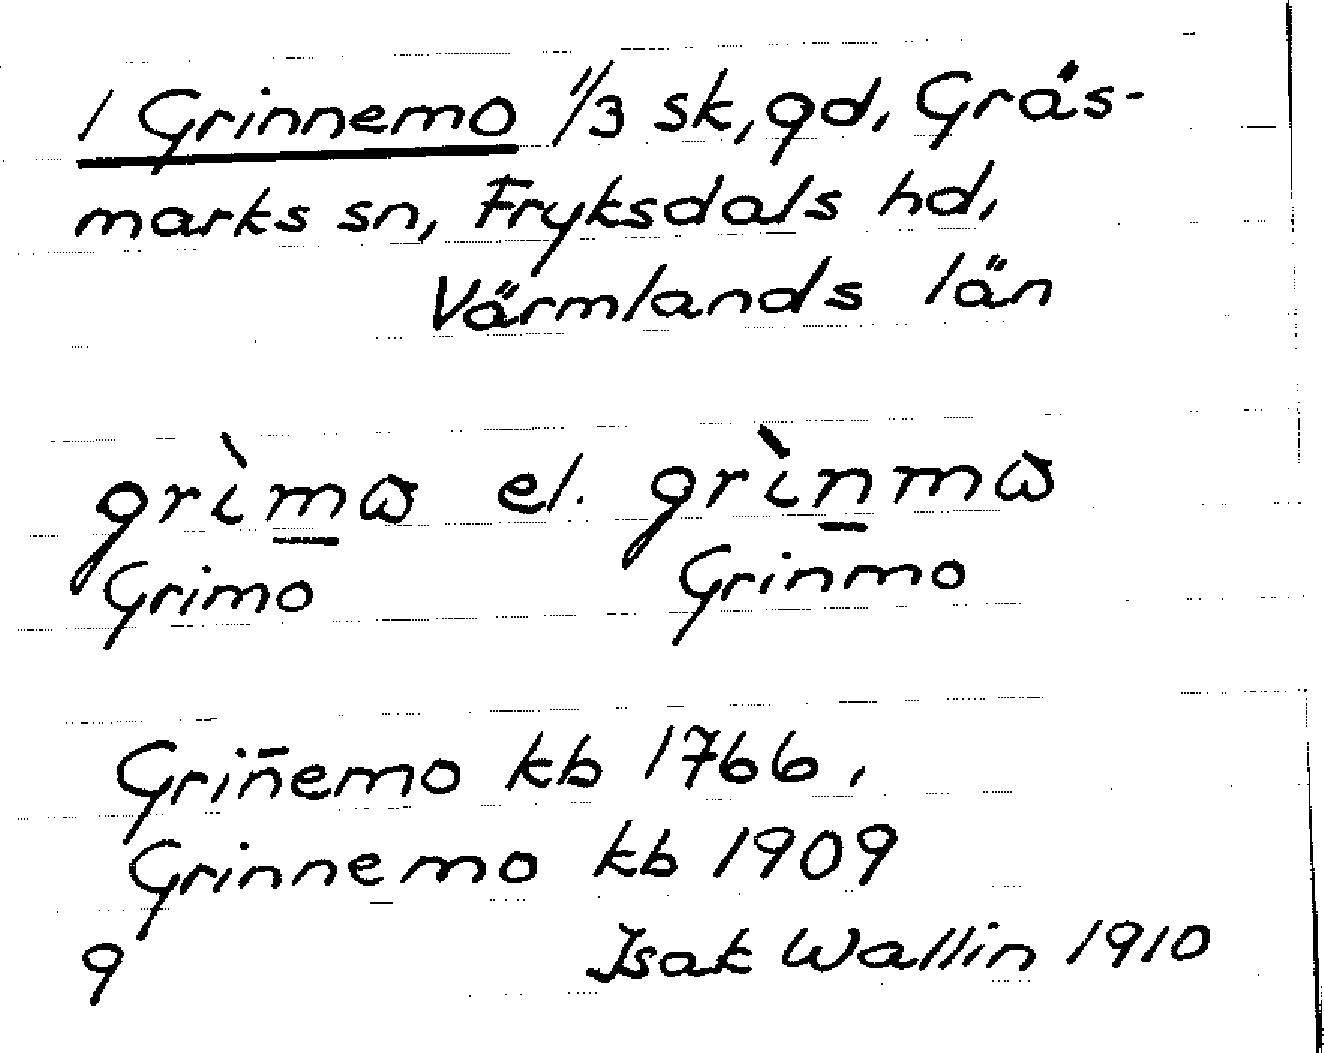 1 Grinnemo 1/3 sk, gd, Gräs-
marks sn, Fryksdals hd,
Värmlands län
grìm̲ɷ el. grìn̲mɷ
Grimo Grinmo
Grin̄emo kb 1766,
Grinnemo kb 1909
9 Isak Wallin 1910